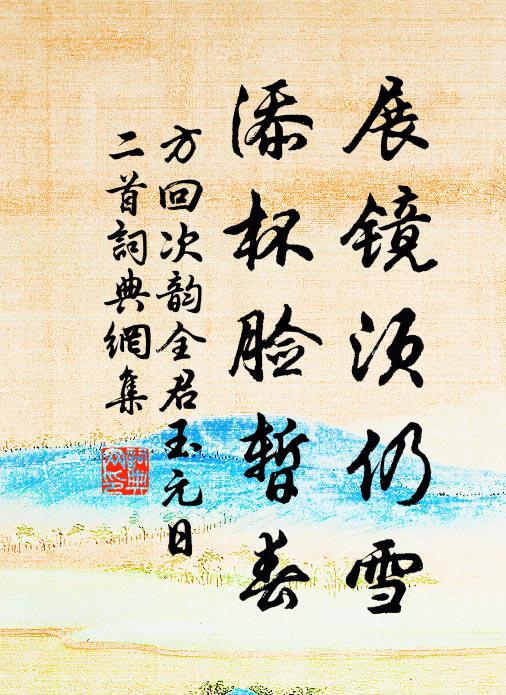 展镜须仍雪
添杯脸暂春
方回次韵全君玉元日
二首詞典網集